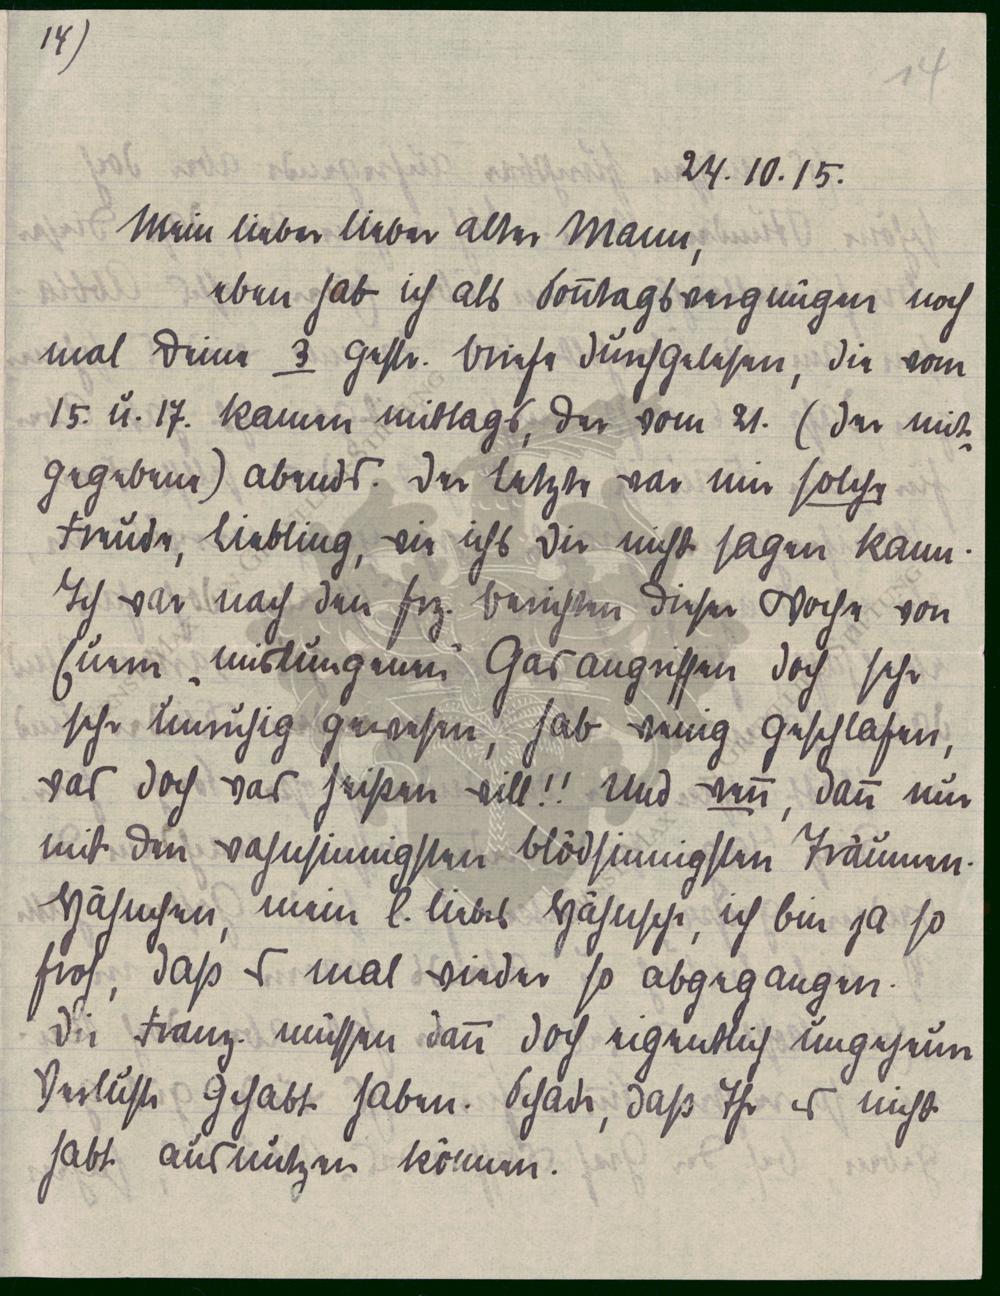 14)
14
24.10.15.
Mein lieber lieber alter Mann,
eben hab ich als Son̄tagsvergnügen noch
mal Deine 3 gestr. Briefe durchgelesen, die vom
15. u. 17. kamen mittags, der vom 21. (der mit-
gegebene) abends. Der letzte war mir solche
Freude, Liebling, wie ichs Dir nicht sagen kann.
Ich war nach den frz. Berichten dieser Woche von
Euern „mislungenen“ Gasangriffen doch sehr
sehr unruhig gewesen, hab wenig geschlafen,
was doch was heißen will!! Und wen̄, dan̄ nur
mit den wahnsinnigsten blödsinnigsten Träumen.
mein l. liebes ich bin ja so
froh, daß es mal wieder so abgegangen.
Die Franz. müssen dan̄ doch eigentlich ungeheure
Verluste gehabt haben. Schade, daß Ihr es nicht
habt ausnützen können.